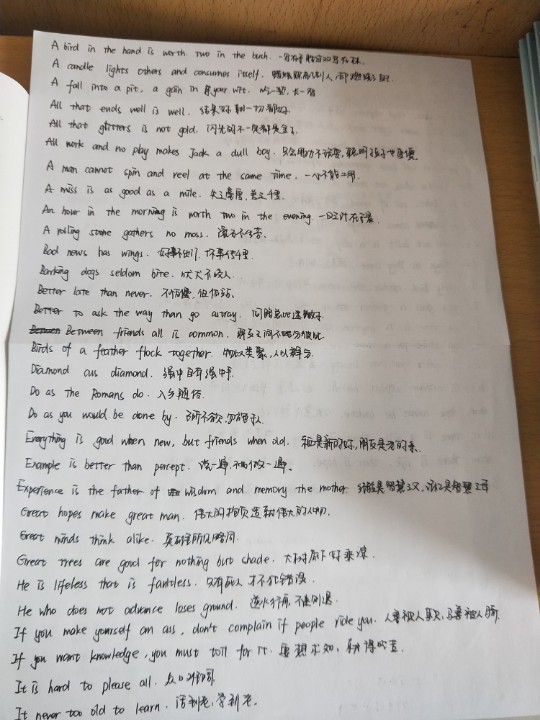 A bird in the hand is worth two in the bush. 一鸟在手胜过双鸟在林.
A candle lights others and consumes itself. 蜡烛照亮别人 却燃烧自己.
A fall into a pit, a gain in your wit. 吃一堑,长一智
All that ends well is well. 结果好,那一切都好.
All that glitters is not gold. 闪光的不一定都是金子.
All work and no play makes Jack a dull boy. 只会用功不玩耍,聪明孩子也变傻.
A man cannot spin and reel at the same time. 一心不能二用.
A miss is as good as a mile. 失之毫厘,差之千里.
An hour in the morning is worth two in the evening. 一日之计在于晨.
A rolling stone gathers no moss. 滚石不生苔.
Bad news has wings. 好事不出门,坏事传千里.
Barking dogs seldom bite. 吠犬不咬人.
Better late than never. 不怕慢,但怕站.
Better to ask the way than go astray. 问路总比迷路好.
Between friends all is common. 朋友之间不分彼此.
Birds of a feather flock together. 物以类聚,人以群分.
Diamond cuts diamond. 强中自有强中手.
Do as the Romans do. 入乡随俗.
Do as you would be done by. 己所不欲,勿施于人.
Everything is good when new, but friends when old. 衣服是新的好,朋友是老的亲.
Example is better than percept. 说一遍,不如做一遍.
Experience is the father of wisdom and memory the mother. 经验是智慧之父,记忆是智慧之母
Great hopes make great man. 伟大的抱负造就伟大的人物.
Great minds think alike. 英雄所见略同.
Great trees are good for nothing but shade. 大树底下好乘凉.
He is lifeless that is faultless. 只有死人才不犯错误.
He who does not advance loses ground. 逆水行舟,不进则退.
If you make yourself an ass, don't complain if people ride you. 人善被人欺,马善被人骑.
If you want knowledge, you must toil for it. 要想求知,就得吃苦.
It is hard to please all. 众口难调.
It never too old to learn. 活到老,学到老.